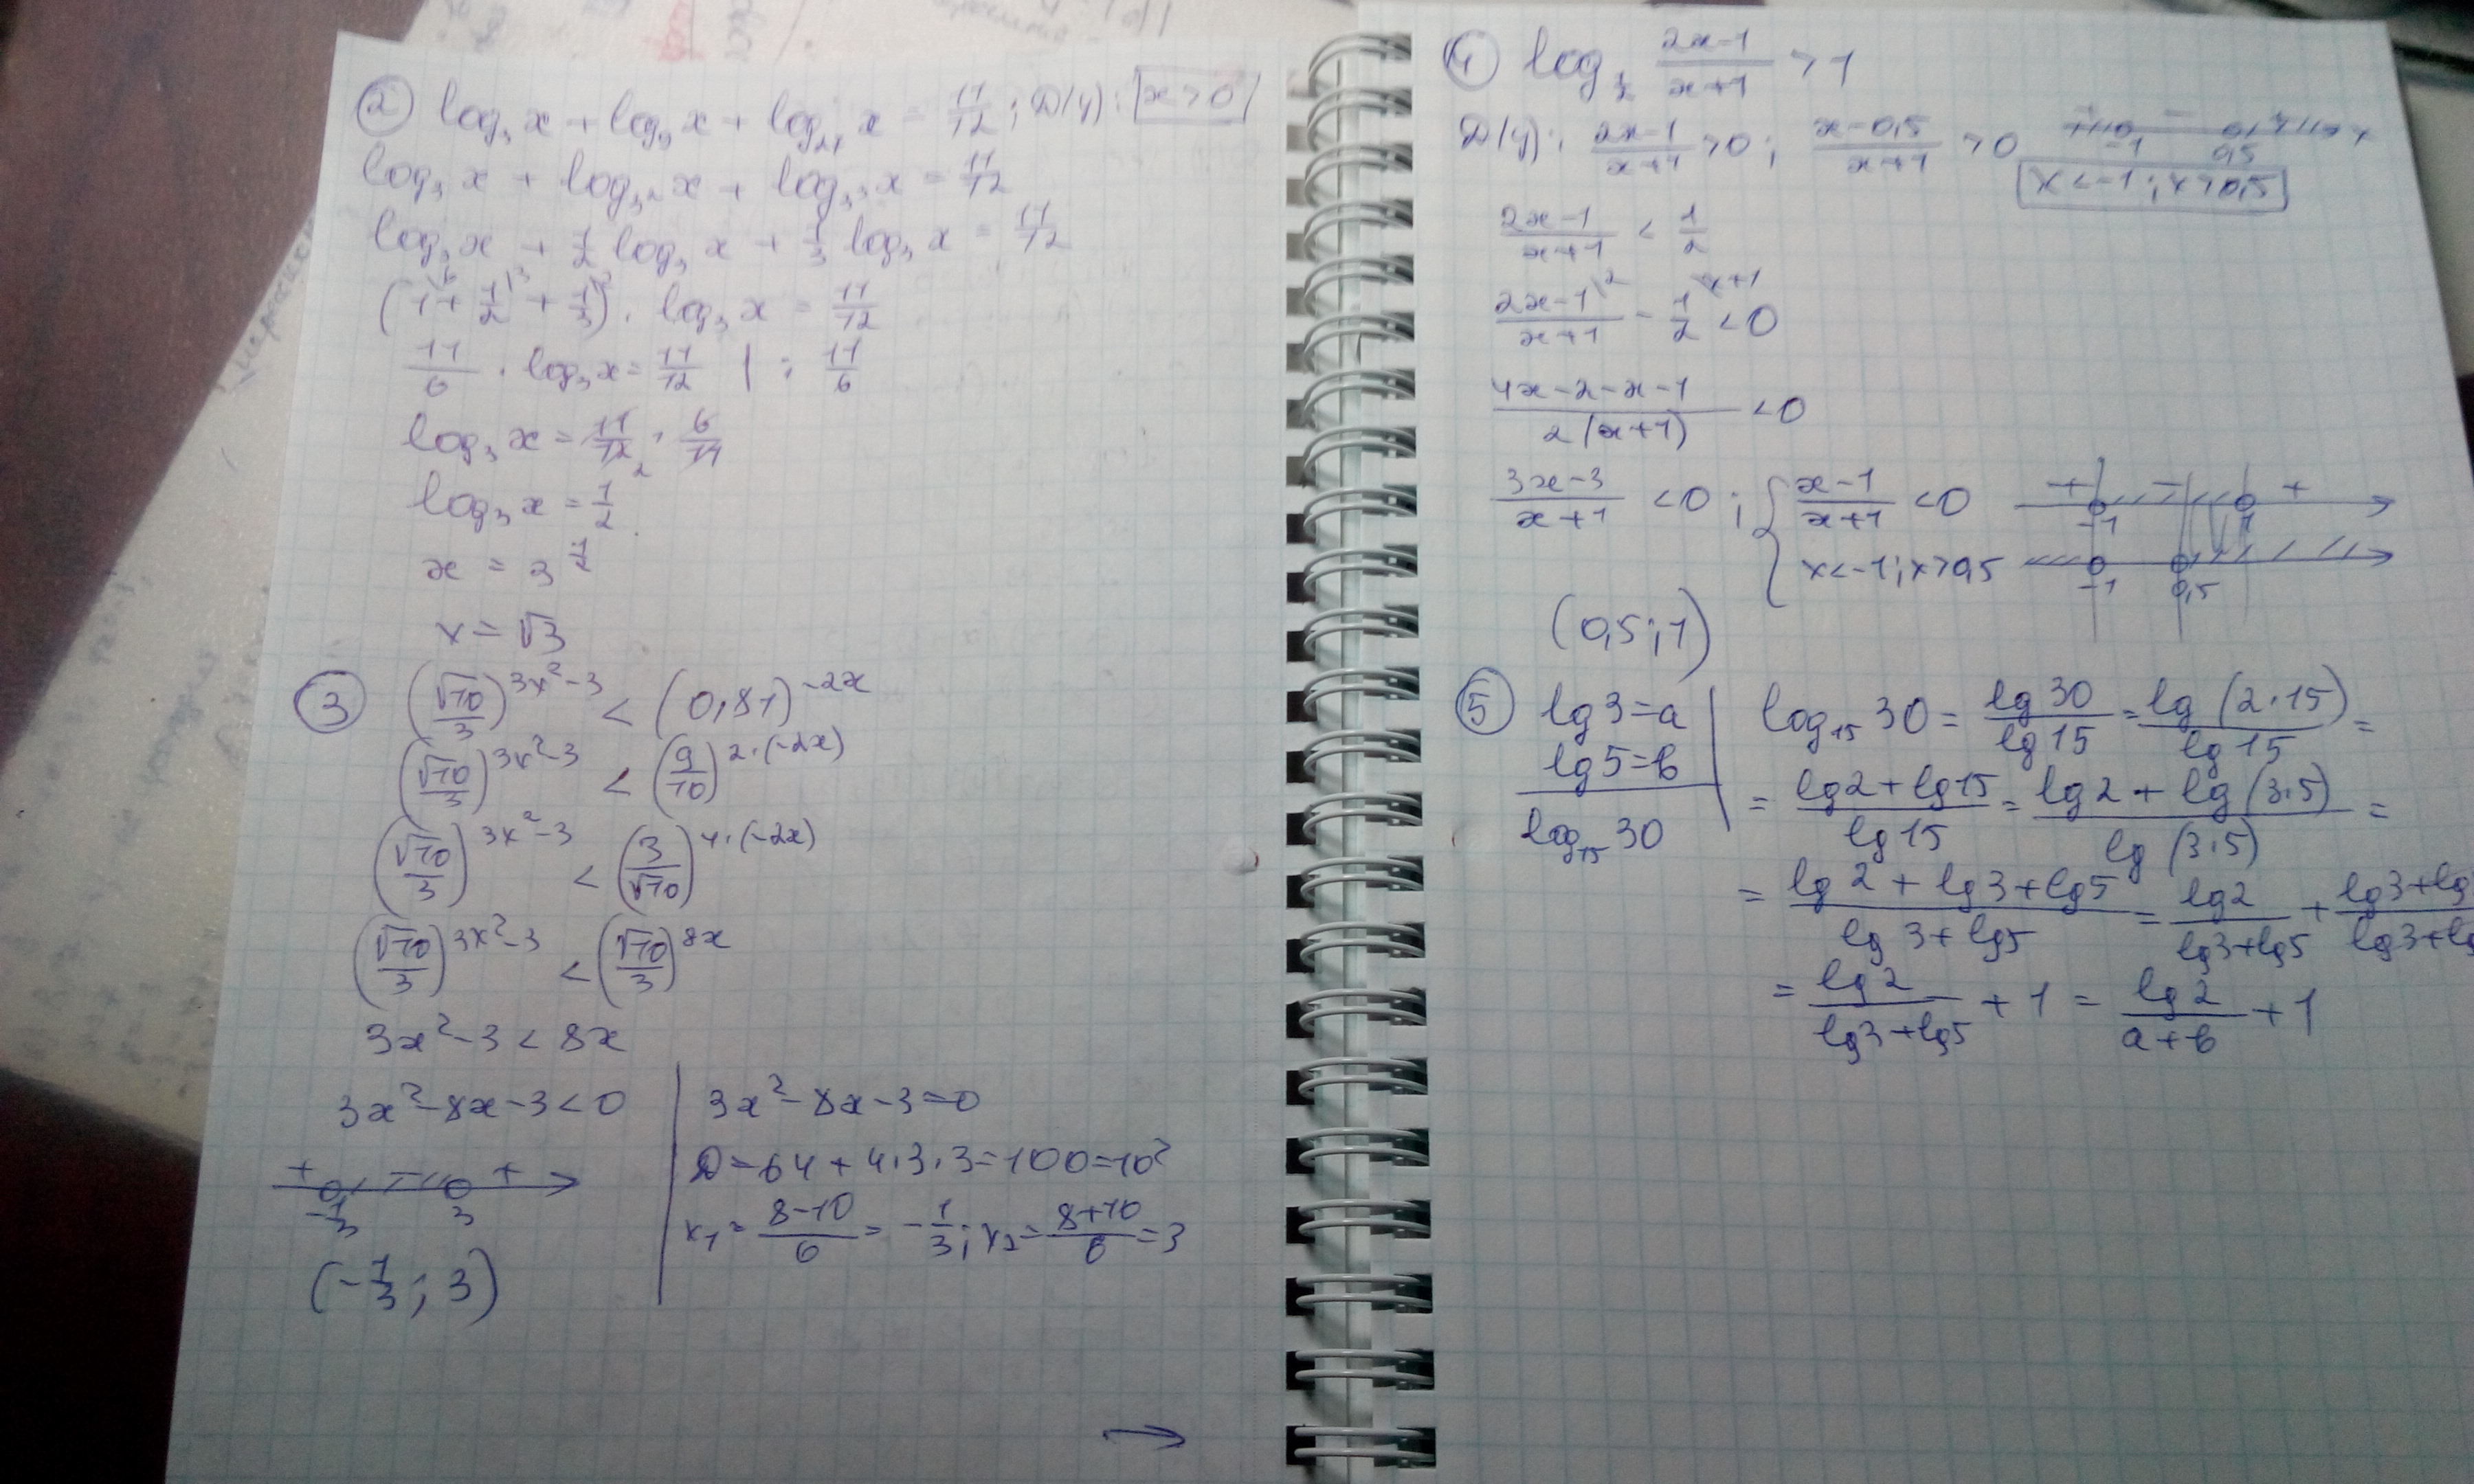 ② log₃x + log₉x + log₂₇x = 11/12; D(y): x>0
log₃x + log₃²x + log₃³x = 11/12
log₃x + 1/2 log₃x + 1/3 log₃x = 11/12
(1\⁶ + 1/2\³ + 1/3\²) · log₃x = 11/12
11/6 · log₃x = 11/12 | : 11/6
log₃x = 11/12 · 6/11
2
log₃x = 1/2
x = 3^(1/2)
x = √3
③ (√10/3)^(3x²-3) < (0,81)^(-2x)
(√10/3)^(3x²-3) < (9/10)^(2·(-2x))
(√10/3)^(3x²-3) < (3/√10)^(4·(-2x))
(√10/3)^(3x²-3) < (√10/3)^(8x)
3x²-3 < 8x
3x²-8x-3<0
+ - +
-1/3 3
(-1/3; 3)
3x²-8x-3=0
D=64+4·3·3=100=10²
x₁ = (8-10)/6 = -1/3; x₂ = (8+10)/6 = 3
④ log_(1/2) (2x-1)/(x+1) > 1
D(y): (2x-1)/(x+1) >0; (x-0,5)/(x+1) >0
+ - +
-1 0,5
x<-1; x>0,5
(2x-1)/(x+1) < 1/2
(2x-1)/(x+1)\² - 1/2\ˣ⁺¹ < 0
(4x-2-x-1)/(2(x+1)) <0
(3x-3)/(x+1) <0; { (x-1)/(x+1) <0
x<-1; x>0,5
+ - +
-1 1
-1 0,5
(0,5; 1)
⑤ lg3=a
lg5=b
log₁₅30
log₁₅30 = lg30/lg15 = lg(2·15)/lg15 =
= (lg2+lg15)/lg15 = (lg2+lg(3·5))/lg(3·5) =
= (lg2+lg3+lg5)/(lg3+lg5) = lg2/(lg3+lg5) + (lg3+lg)/(lg3+lg
= lg2/(lg3+lg5) + 1 = lg2/(a+b) + 1